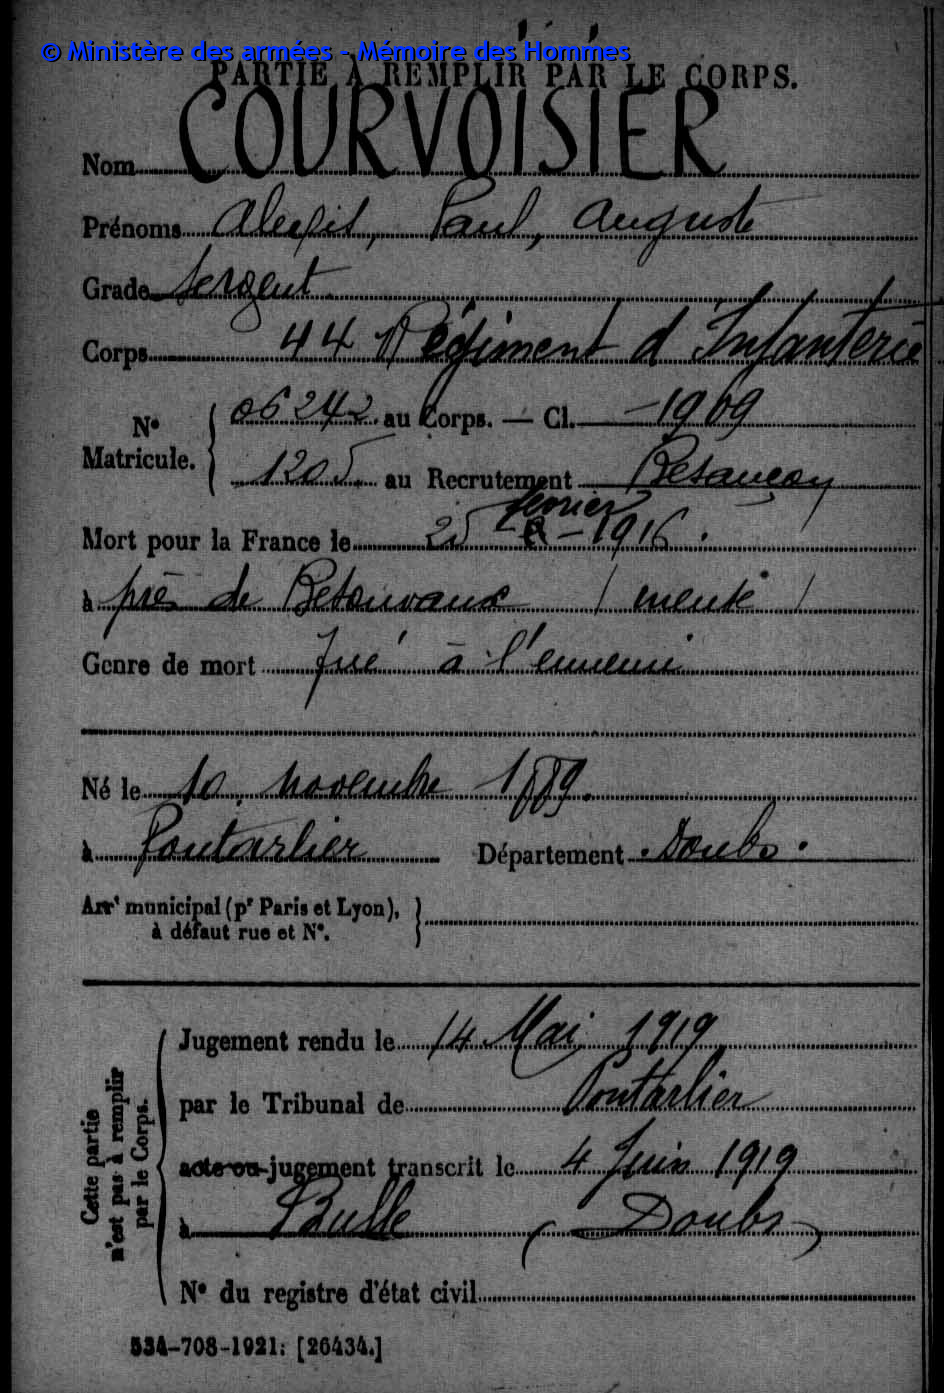 © Ministère des armées - Mémoire des Hommes
PARTIE À REMPLIR PAR LE CORPS.
Nom COURVOISIER
Prénoms Alexis, Paul, Auguste
Grade Sergent
Corps 44 Régiment d'Infanterie
N° Matricule. { 06242 au Corps. — Cl. 1909
1205 au Recrutement Besançon
février
Mort pour la France le 25 - 1916.
à près de Bezonvaux ( meuse )
Genre de mort Tué à l'ennemi
Né le 10 novembre 1889.
à Pontarlier Département Doubs.
Arrt municipal (pr Paris et Lyon), }
à défaut rue et N°.
Cette partie n'est pas à remplir par le Corps.
Jugement rendu le 14 Mai 1919
par le Tribunal de Pontarlier
acte ou jugement transcrit le 4 Juin 1919
à Bulle (Doubs)
N° du registre d'état civil
534-708-1921. [26434.]